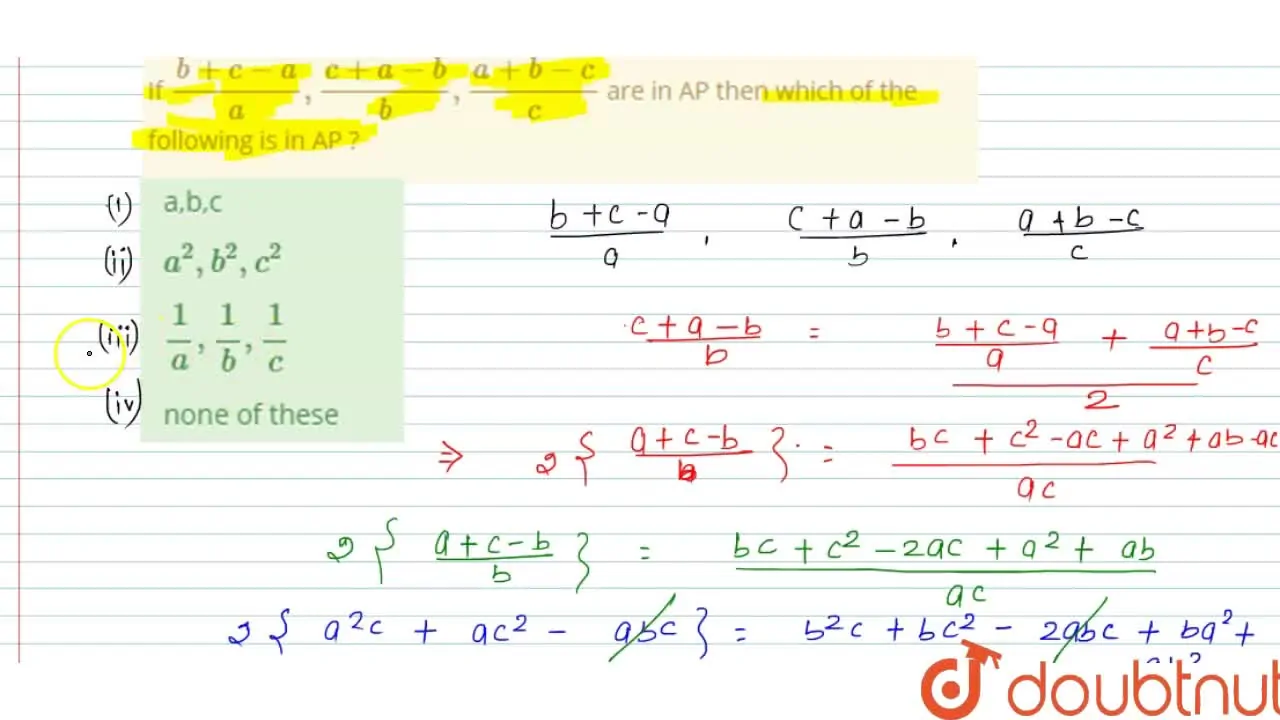 If \frac{b+c-a}{a}, \frac{c+a-b}{b}, \frac{a+b-c}{c} are in AP then which of the
following is in AP ?
(i) a,b,c
(ii) a², b², c²
(iii) \frac{1}{a}, \frac{1}{b}, \frac{1}{c}
(iv) none of these
\frac{b+c-a}{a}, \frac{c+a-b}{b}, \frac{a+b-c}{c}
\frac{c+a-b}{b} = \frac{\frac{b+c-a}{a} + \frac{a+b-c}{c}}{2}
⇒ 2{\frac{a+c-b}{b}} = \frac{bc+c²-ac+a²+ab-ac}{ac}
2{\frac{a+c-b}{b}} = \frac{bc+c²-2ac+a²+ab}{ac}
2{a²c + ac² - abc} = b²c + bc² - 2abc + ba² +
doubtnut